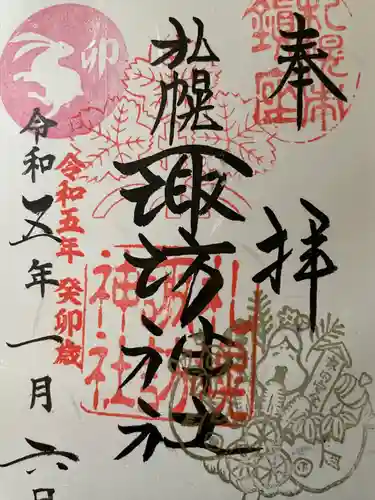 奉拝
札幌
諏訪神社
札幌
諏訪
神社
卯
令和五年 癸卯歳
令和五年一月六日